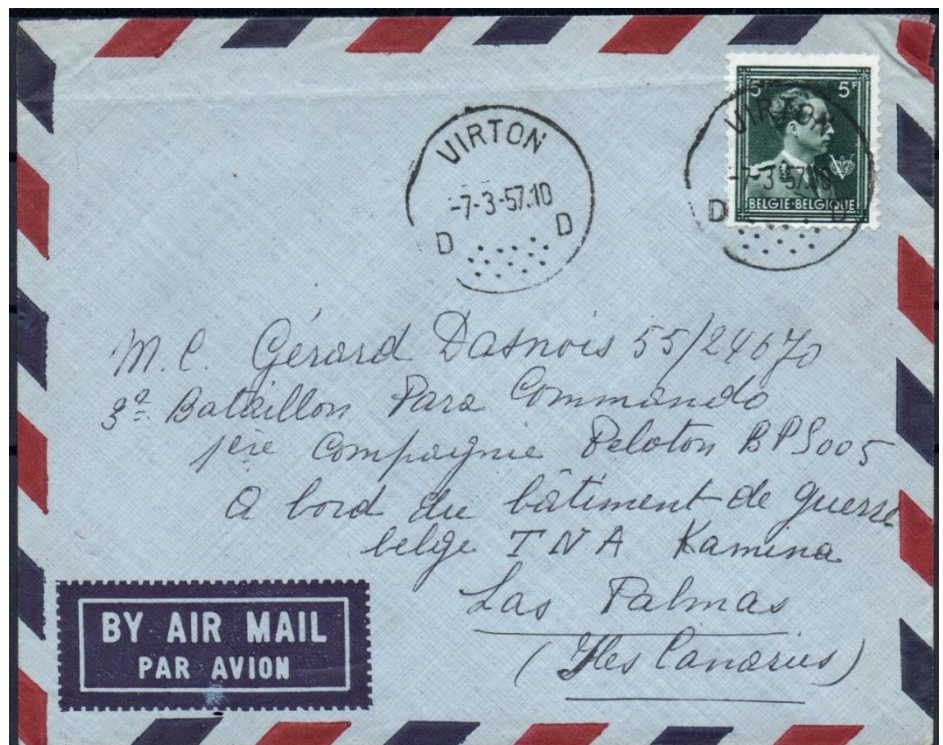 5F 5F
VIRTON
-7-3-57.10
D D
BELGIE-BELGIQUE
VIRTON
-7-3-57.10
D D
M.C. Gérard Dasnois 55/24670
3e Bataillon Para Commando
1ère Compagnie Peloton BPS005
A bord du bâtiment de guerre
belge TNA Kamina
Las Palmas
(Iles Canaries)
BY AIR MAIL
PAR AVION